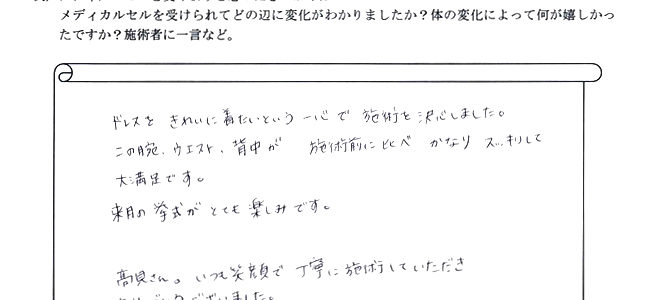 メディカルセルを受けられてどの辺に変化がわかりましたか？体の変化によって何が嬉しかっ
たですか？施術者に一言など。
ドレスを きれいに着たいという一心で 施術を 決心しました。
二の腕、ウエスト、背中が 施術前に比べ かなり スッキリして
大満足です。
来月の 挙式が とても 楽しみです。
髙貝さん。いつも笑顔で 丁寧に施術していただき
ありがとうございました。